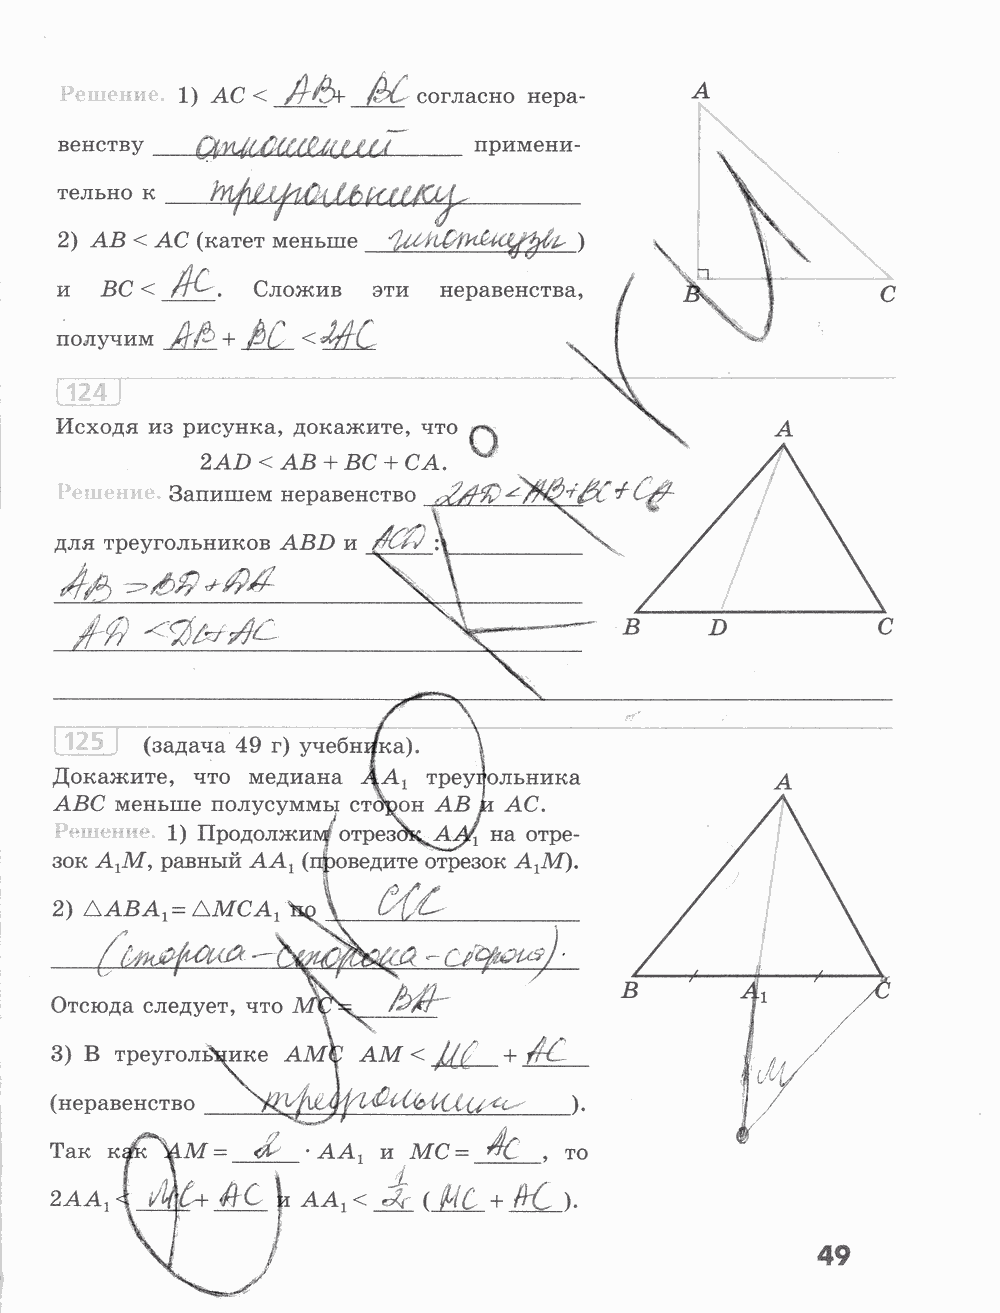 Решение. 1) AC < AB + BC согласно нера-
венству отношений примени-
тельно к треугольнику
2) AB < AC (катет меньше гипотенузы)
и BC < AC. Сложив эти неравенства,
получим AB + BC < 2AC
A
B
C
124
Исходя из рисунка, докажите, что
2AD < AB + BC + CA.
Решение. Запишем неравенство 2AD < AB + BC + CA
для треугольников ABD и ACD:
AB => BD + DA
AD < DC + AC
A
B D C
125 (задача 49 г) учебника).
Докажите, что медиана AA₁ треугольника
ABC меньше полусуммы сторон AB и AC.
Решение. 1) Продолжим отрезок AA₁ на отре-
зок A₁M, равный AA₁ (проведите отрезок A₁M).
2) △ABA₁ = △MCA₁ по ССС
(сторона – сторона – сторона).
Отсюда следует, что MC = BA
3) В треугольнике AMC AM < MC + AC
(неравенство треугольника).
Так как AM = 2 · AA₁ и MC = AC, то
2AA₁ < MC + AC и AA₁ < 1/2 (MC + AC).
A
B A₁ C
M
49